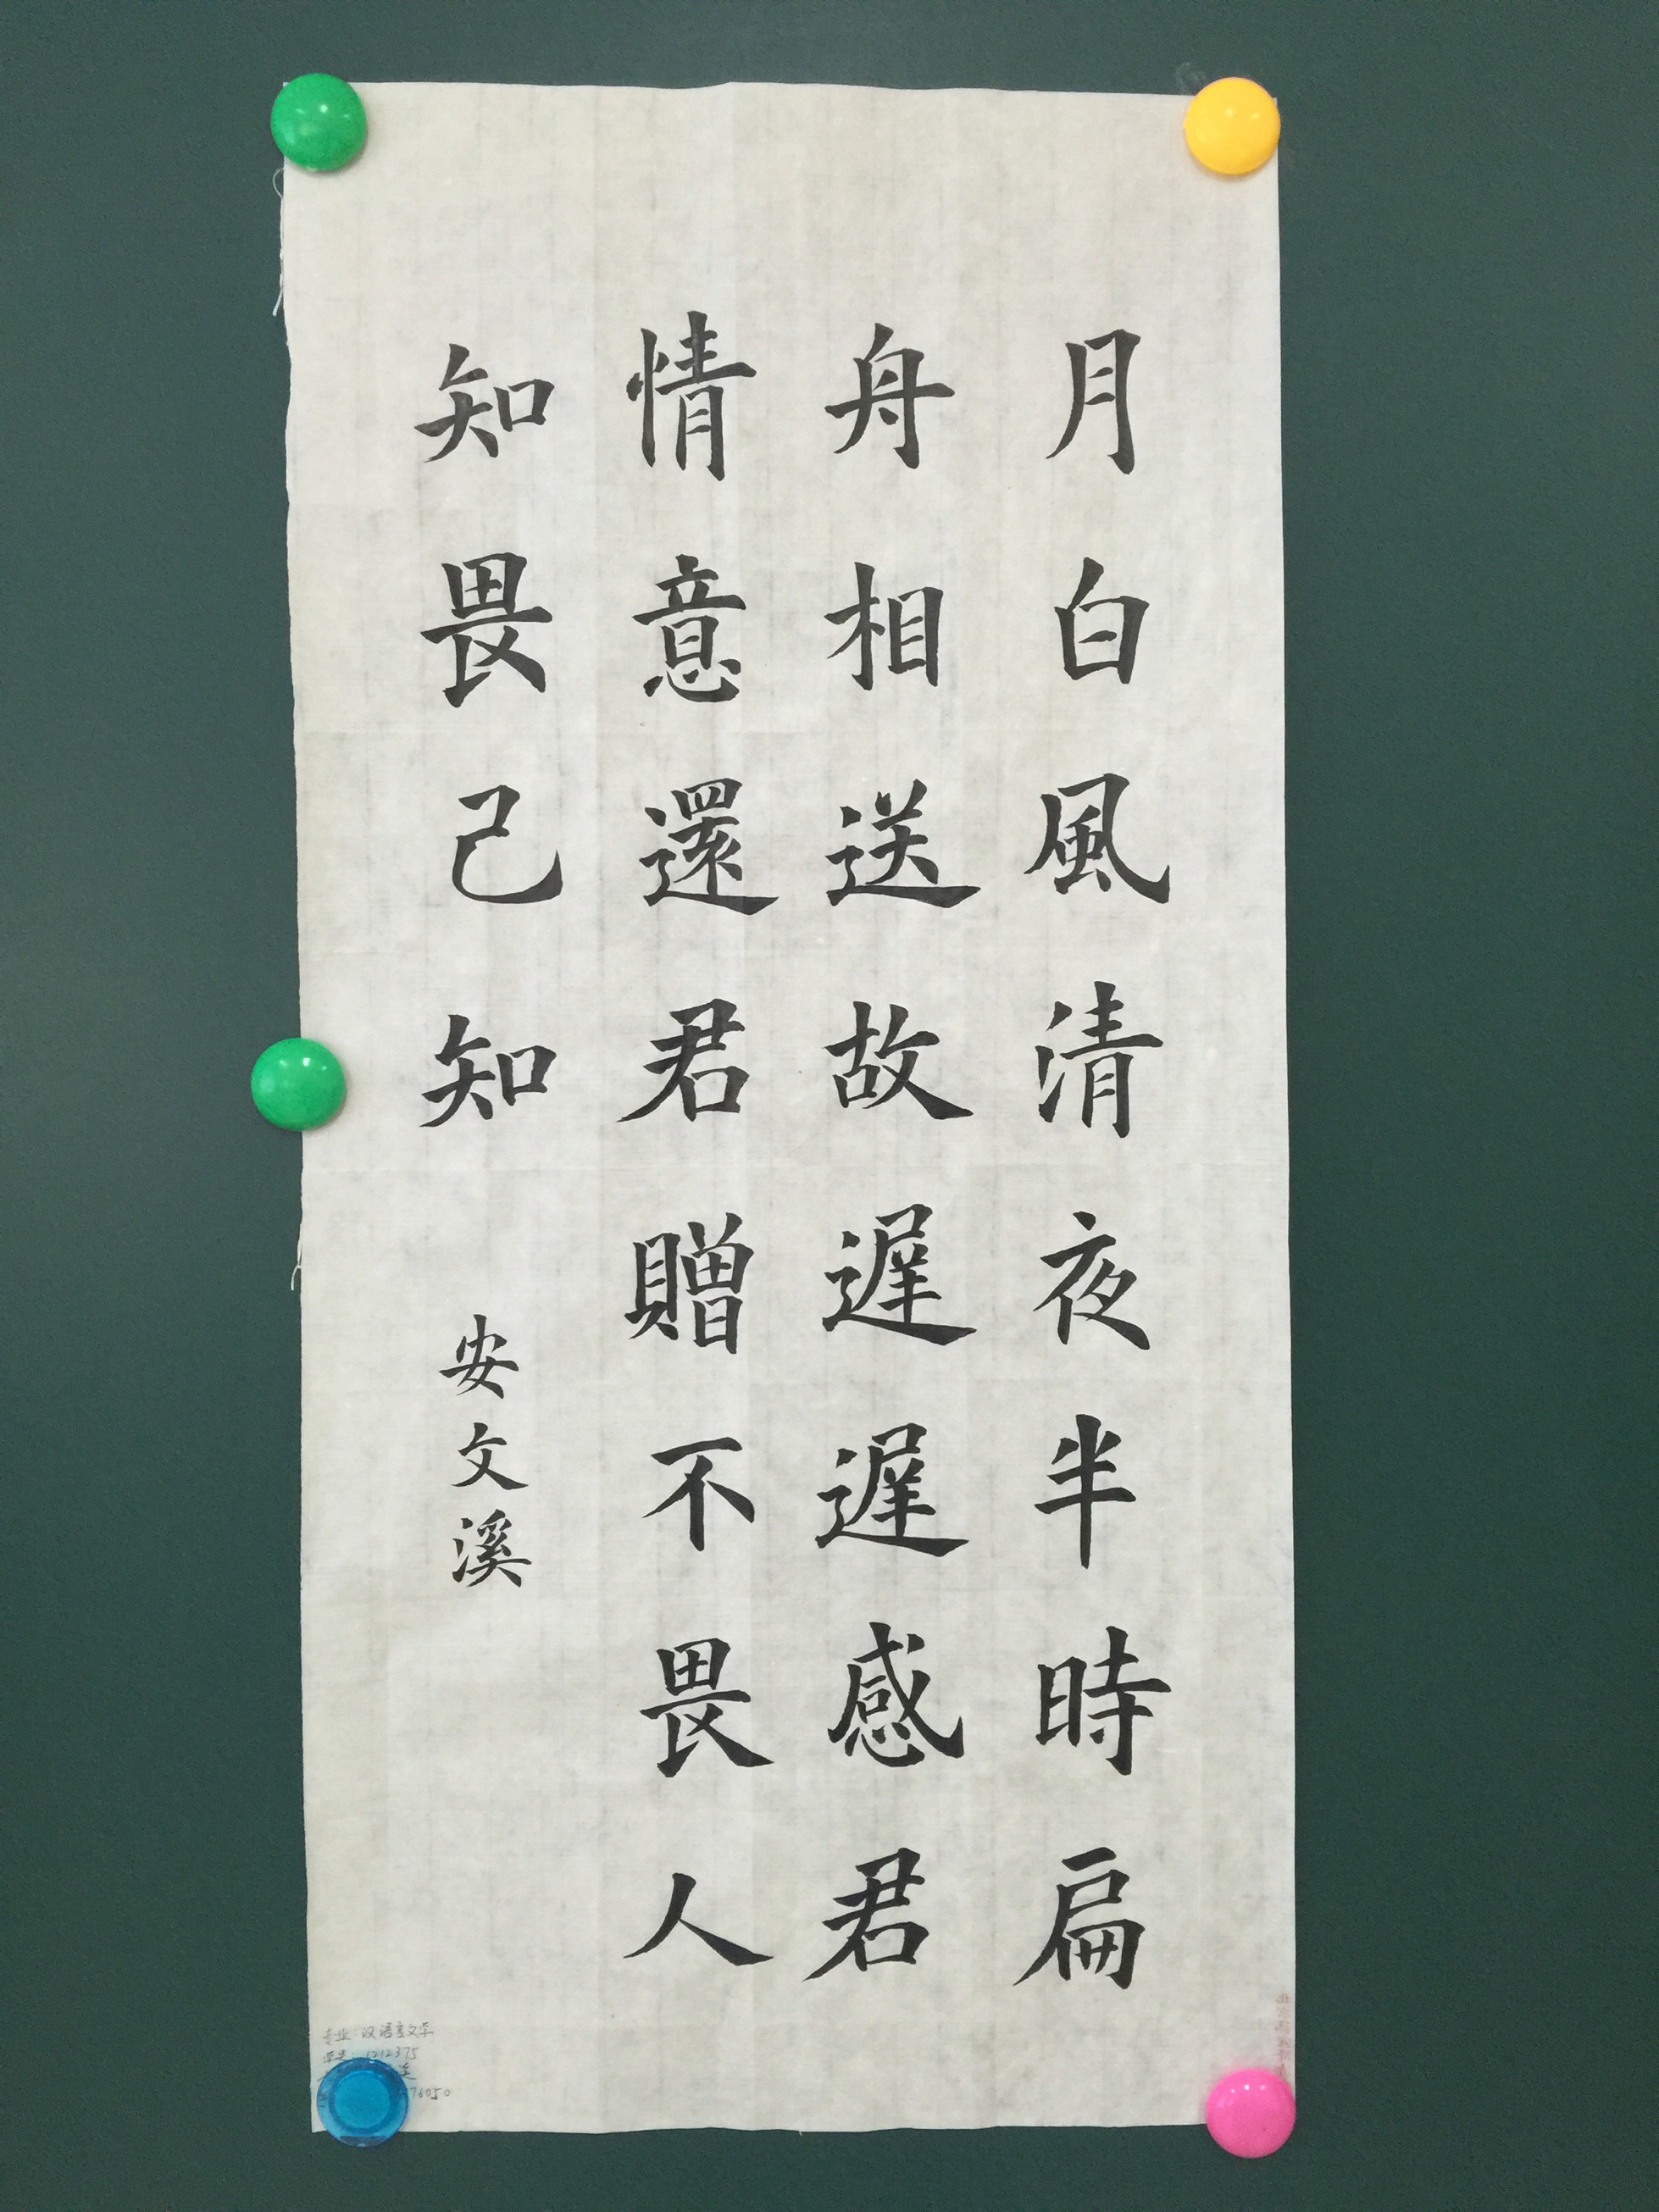 月白風清夜半時扁
舟相送故遲遲感君
情意還君贈不畏人
知畏己知
安文溪
专业:汉语言文学
学号:1212375
76050